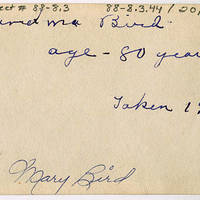 ect # 88-8.3 88-8.3.44 / 20
and ma Bird
age - 80 year
Taken 1
Mary Bird